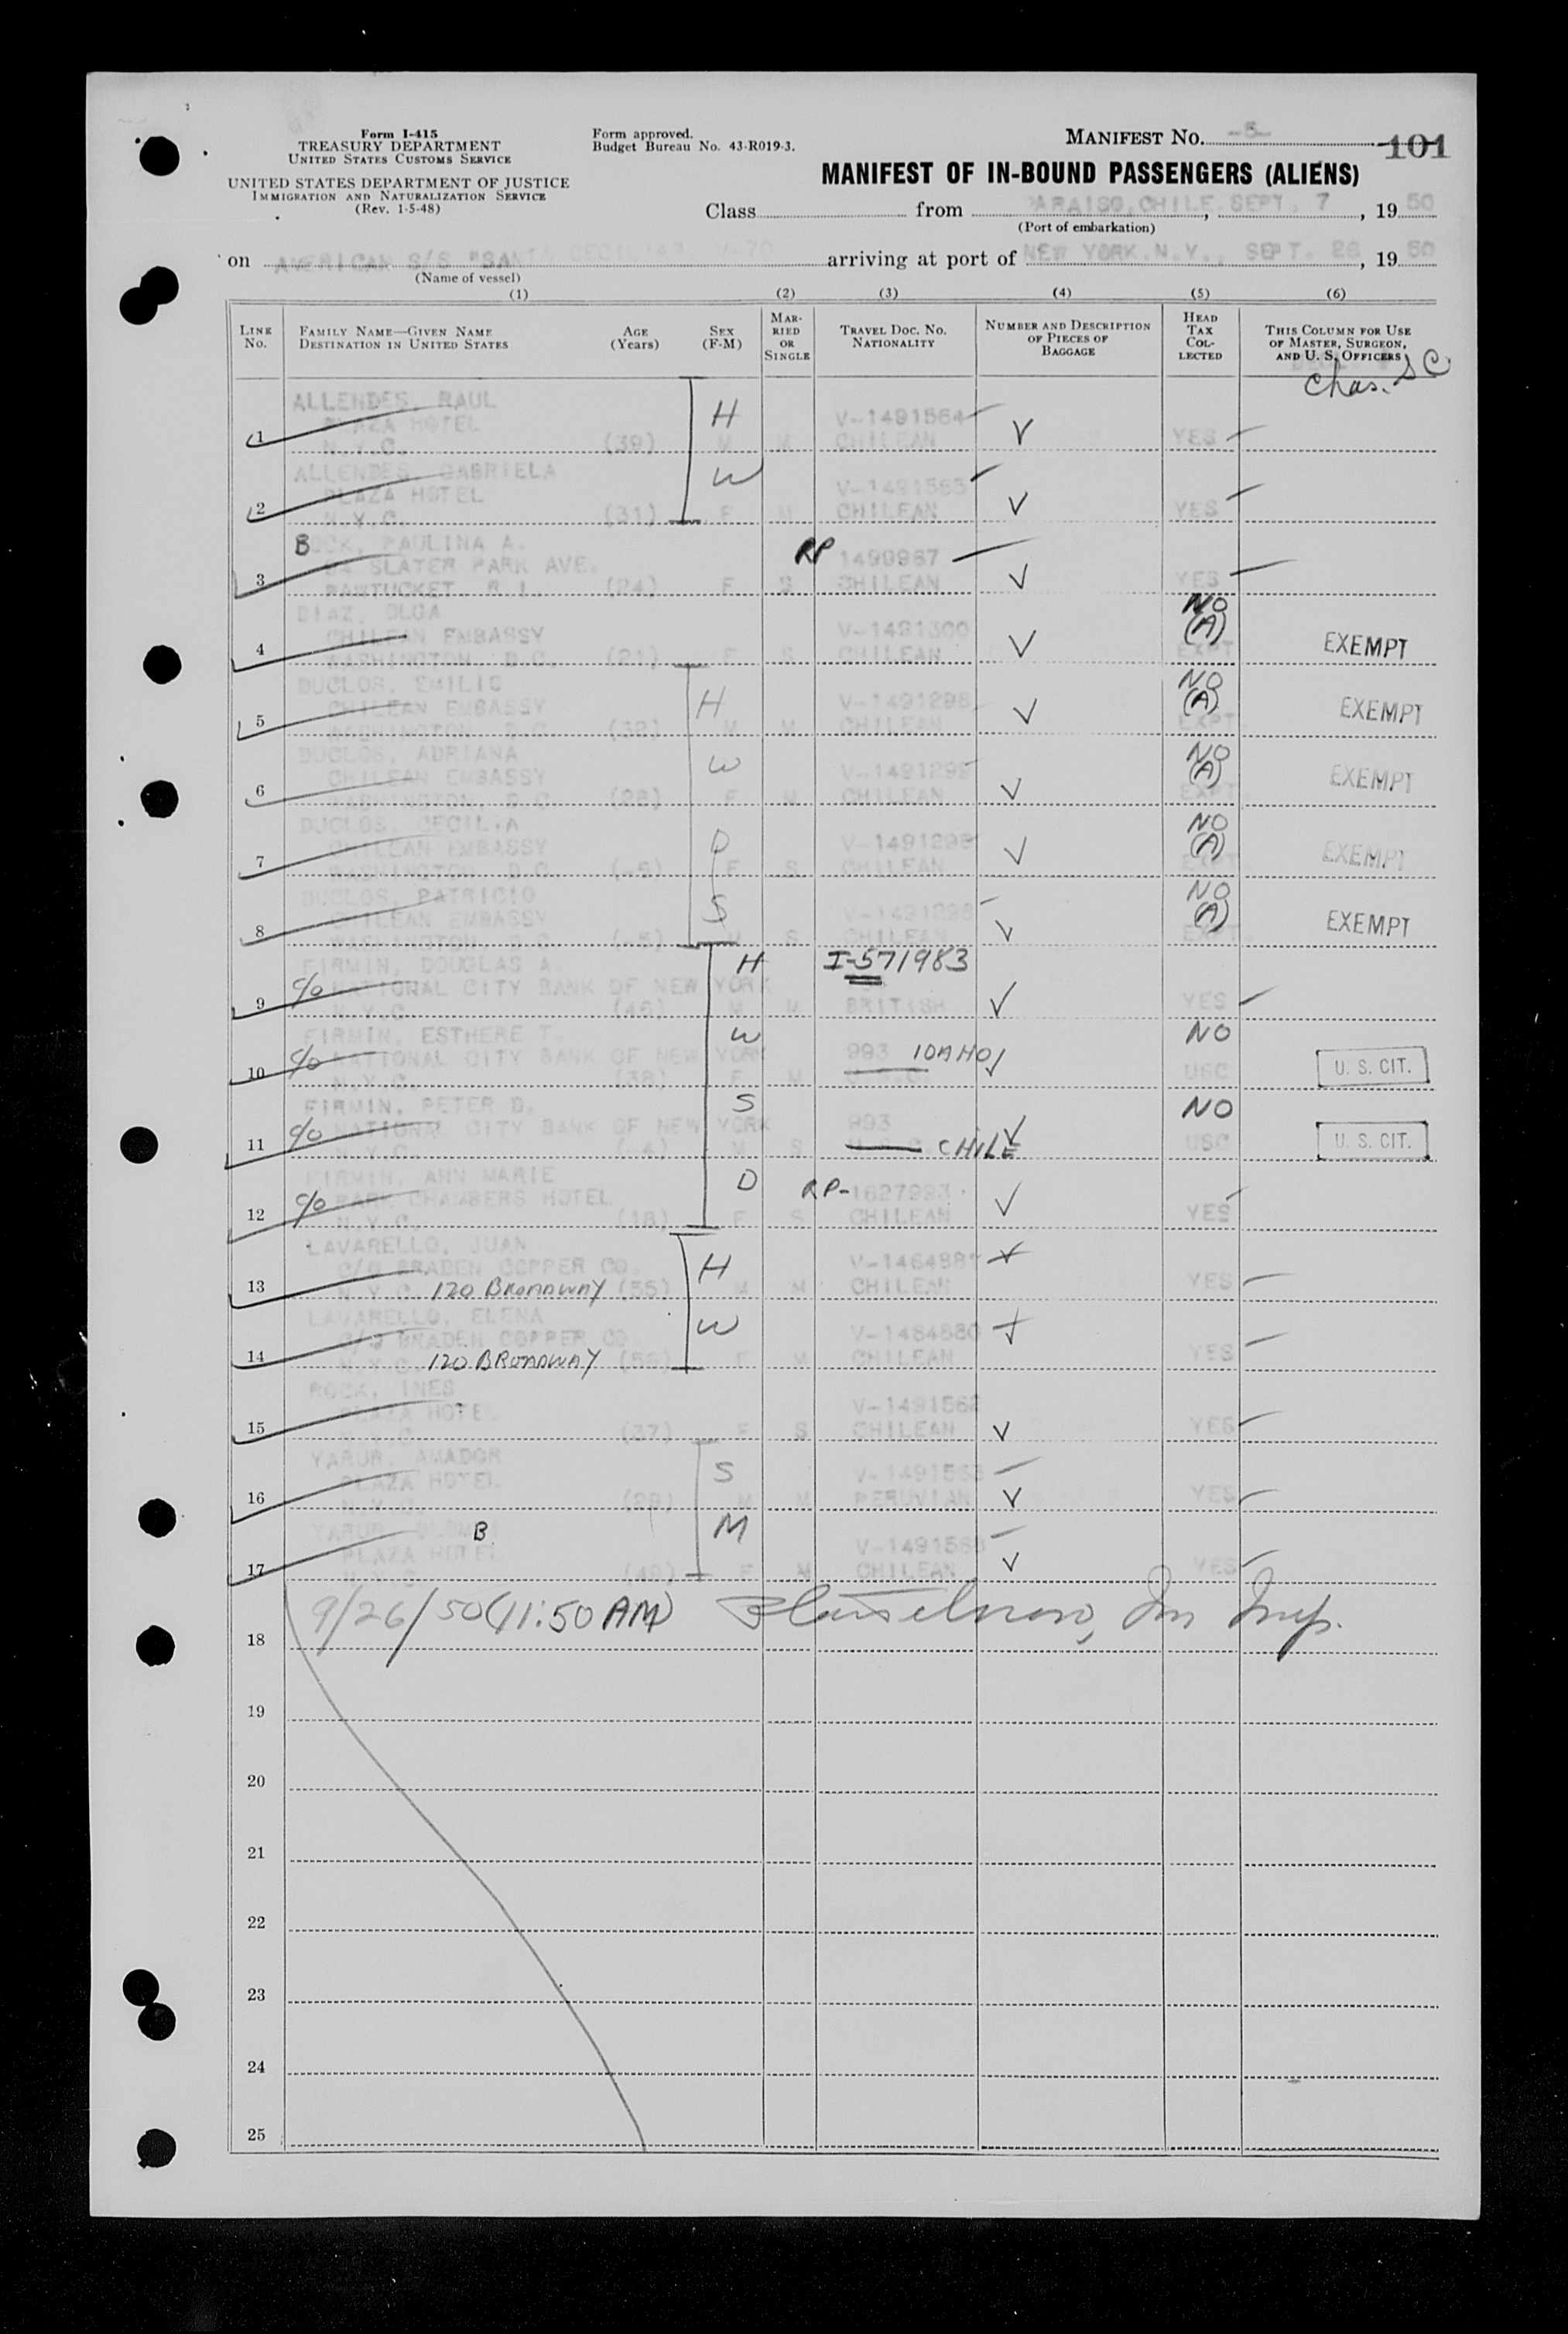 Form I-415
TREASURY DEPARTMENT
UNITED STATES CUSTOMS SERVICE
UNITED STATES DEPARTMENT OF JUSTICE
IMMIGRATION AND NATURALIZATION SERVICE
(Rev. 1-5-48)
Form approved.
Budget Bureau No. 43-R019-3.
MANIFEST No. -5- 101
MANIFEST OF IN-BOUND PASSENGERS (ALIENS)
Class from PARAISO, CHILE, SEPT. 7, 1950
(Port of embarkation)
on AMERICAN S/S "SANTA CECILIA" arriving at port of NEW YORK, N.Y., SEPT. 26, 1950
(Name of vessel)
(1) (2) (3) (4) (5) (6)
LINE No. FAMILY NAME—GIVEN NAME DESTINATION IN UNITED STATES AGE (Years) SEX (F-M) MARRIED OR SINGLE TRAVEL DOC. NO. NATIONALITY NUMBER AND DESCRIPTION OF PIECES OF BAGGAGE HEAD TAX COLLECTED THIS COLUMN FOR USE OF MASTER, SURGEON, AND U. S. OFFICERS
Chas. S C
ALLENDES, RAUL H
PLAZA HOTEL V-1491564
1 N.Y.C. (39) M M CHILEAN V YES
ALLENDES, GABRIELA W
PLAZA HOTEL V-1491565
2 N.Y.C. (31) F M CHILEAN V YES
BOCK, PAULINA A. RP 1490987
SLATER PARK AVE.
3 PAWTUCKET, R.I. (24) F S CHILEAN V YES
DIAZ, OLGA NO
CHILEAN EMBASSY V-1491300 (A)
4 WASHINGTON, D.C. (21) F S CHILEAN V EXPT EXEMPT
DUCLOS, EMILIO NO
CHILEAN EMBASSY H V-1491298 (A)
5 WASHINGTON, D.C. M M CHILEAN V EXPT EXEMPT
DUCLOS, ADRIANA W NO
CHILEAN EMBASSY V-1491299 (A)
6 WASHINGTON, D.C. (28) F M CHILEAN V EXPT. EXEMPT
DUCLOS, CECILIA D NO
CHILEAN EMBASSY V-1491298 (A)
7 WASHINGTON, D.C. F S CHILEAN V EXPT. EXEMPT
DUCLOS, PATRICIO S NO
CHILEAN EMBASSY V-1491298 (A)
8 WASHINGTON, D.C. M S CHILEAN V EXPT. EXEMPT
FIRMIN, DOUGLAS A. H I-571983
c/o NATIONAL CITY BANK OF NEW YORK
9 N.Y.C. (46) M M BRITISH V YES
FIRMIN, ESTHERE T. W NO
c/o NATIONAL CITY BANK OF NEW YORK 993 IDAHO
10 N.Y.C. (38) F M U.S.C. USC U. S. CIT.
FIRMIN, PETER D. S NO
c/o NATIONAL CITY BANK OF NEW YORK 993
11 N.Y.C. (4) M S CHILE USC U. S. CIT.
FIRMIN, ANN MARIE D RP-1627993
c/o PARK CHAMBERS HOTEL
12 N.Y.C. (18) F S CHILEAN V YES
LAVARELLO, JUAN H
C/O BRADEN COPPER CO.
13 N.Y.C. 120 BROADWAY (55) M M CHILEAN YES
LAVARELLO, ELENA W
C/O BRADEN COPPER CO. V-1464880
14 N.Y.C. 120 BROADWAY F M CHILEAN YES
ROCK, INES
PLAZA HOTEL V-1491562
15 N.Y.C. (37) F S CHILEAN V YES
YARUR, AMADOR S
PLAZA HOTEL V-1491563
16 N.Y.C. M M PERUVIAN V YES
YARUR, B M
PLAZA HOTEL
17 N.Y.C. F M CHILEAN V YES
9/26/50 (11:50 AM) Im Insp.
18
19
20
21
22
23
24
25